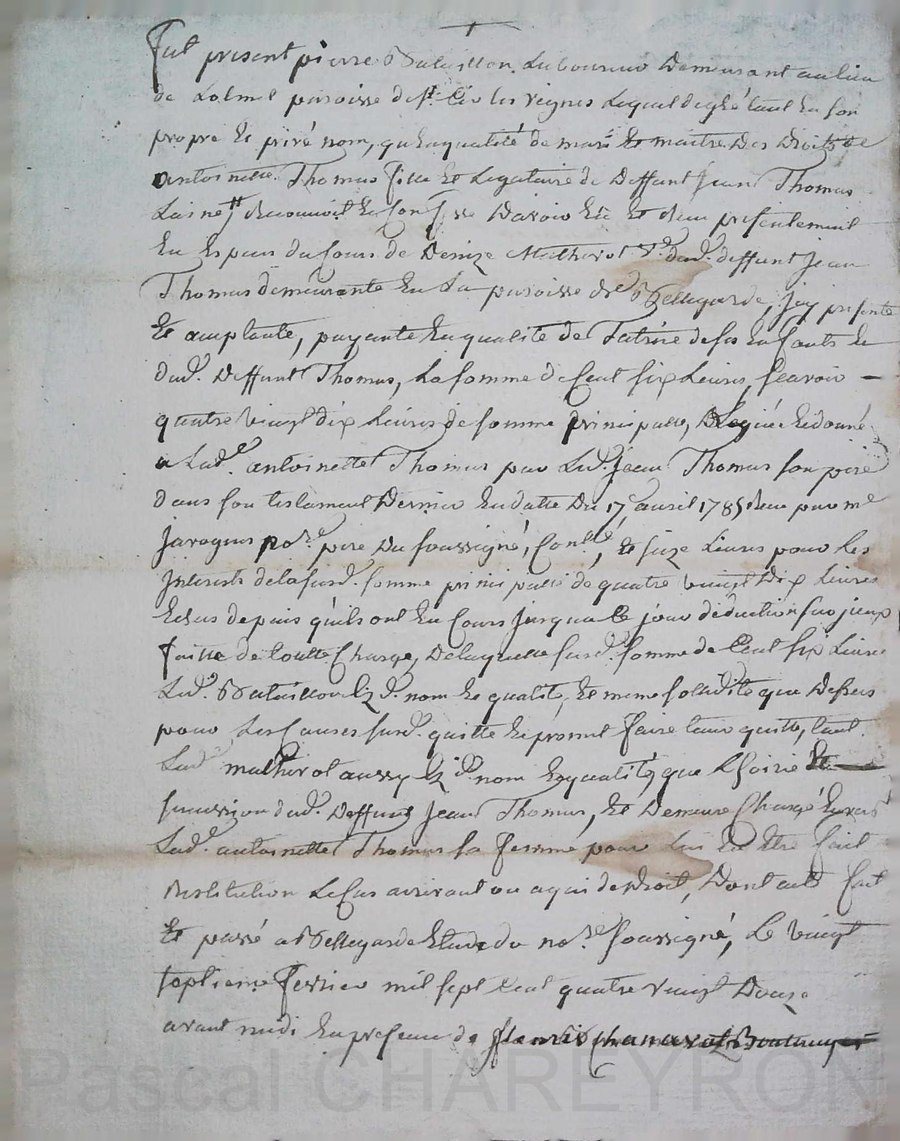 Fut present pierre Bataillon Laboureur Demeurant au lieu
de Lolme paroisse de st Cir les vignes Lequel de gré tant En son
propre Et privé nom, qu'En qualité de mari Et maitre Des Droits de
antoinette Thomas fille Et Legataire de Deffunt Jean Thomas
Laine reconnoit Et Confesse Davoir Eu Et Receu presentement
En Especes du Cours de Denize Matherot ve. dud. deffunt Jean
Thomas demeurante En La paroisse de Bellegarde, jcy presente
Et acceptante, payante En qualité de Tutrice de ses Enfants Et
dud. Deffunt Thomas, La somme de Cent six Livres, scavoir
quatre vingt dix Livres de somme principalle, Leguée Et donné
a Lad. antoinette Thomas par Led. Jean Thomas son pere
dans son testament Dernier En datte Du 17 avril 1785 Receu par me
Javogues nore. pere Du soussigné, Et seize Livres pour Les
Interests de la susd. somme principalle de quatre vingt Dix Livres
Echus depuis qu'ils ont Eu Cours jusqu'a Ce jour déduction sur jceux
faitte de toutte Charge, De laquelle susd. somme de Cent six Livres
Led. Bataillon Ez d. nom Et qualité, Et meme solidité que Dessus
pour Les Causes susd. quitte Et promet faire tenir quitte, tant
Lad. matherot aussy Ez d. nom Et qualité, que L'hoirie Et
succession dud. Deffunt Jean Thomas, Et Demeure Chargé Envers
Lad. antoinette Thomas sa femme pour Lui En Etre fait
restitution Le Cas arrivant ou a qui de droit, Dont acte fait
Et passé a Bellegarde Etude du nore. soussigné, Le vingt
septieme fevrier mil sept Cent quatre vingt Douze
avant midi En presence de
Pascal CHAREYRON